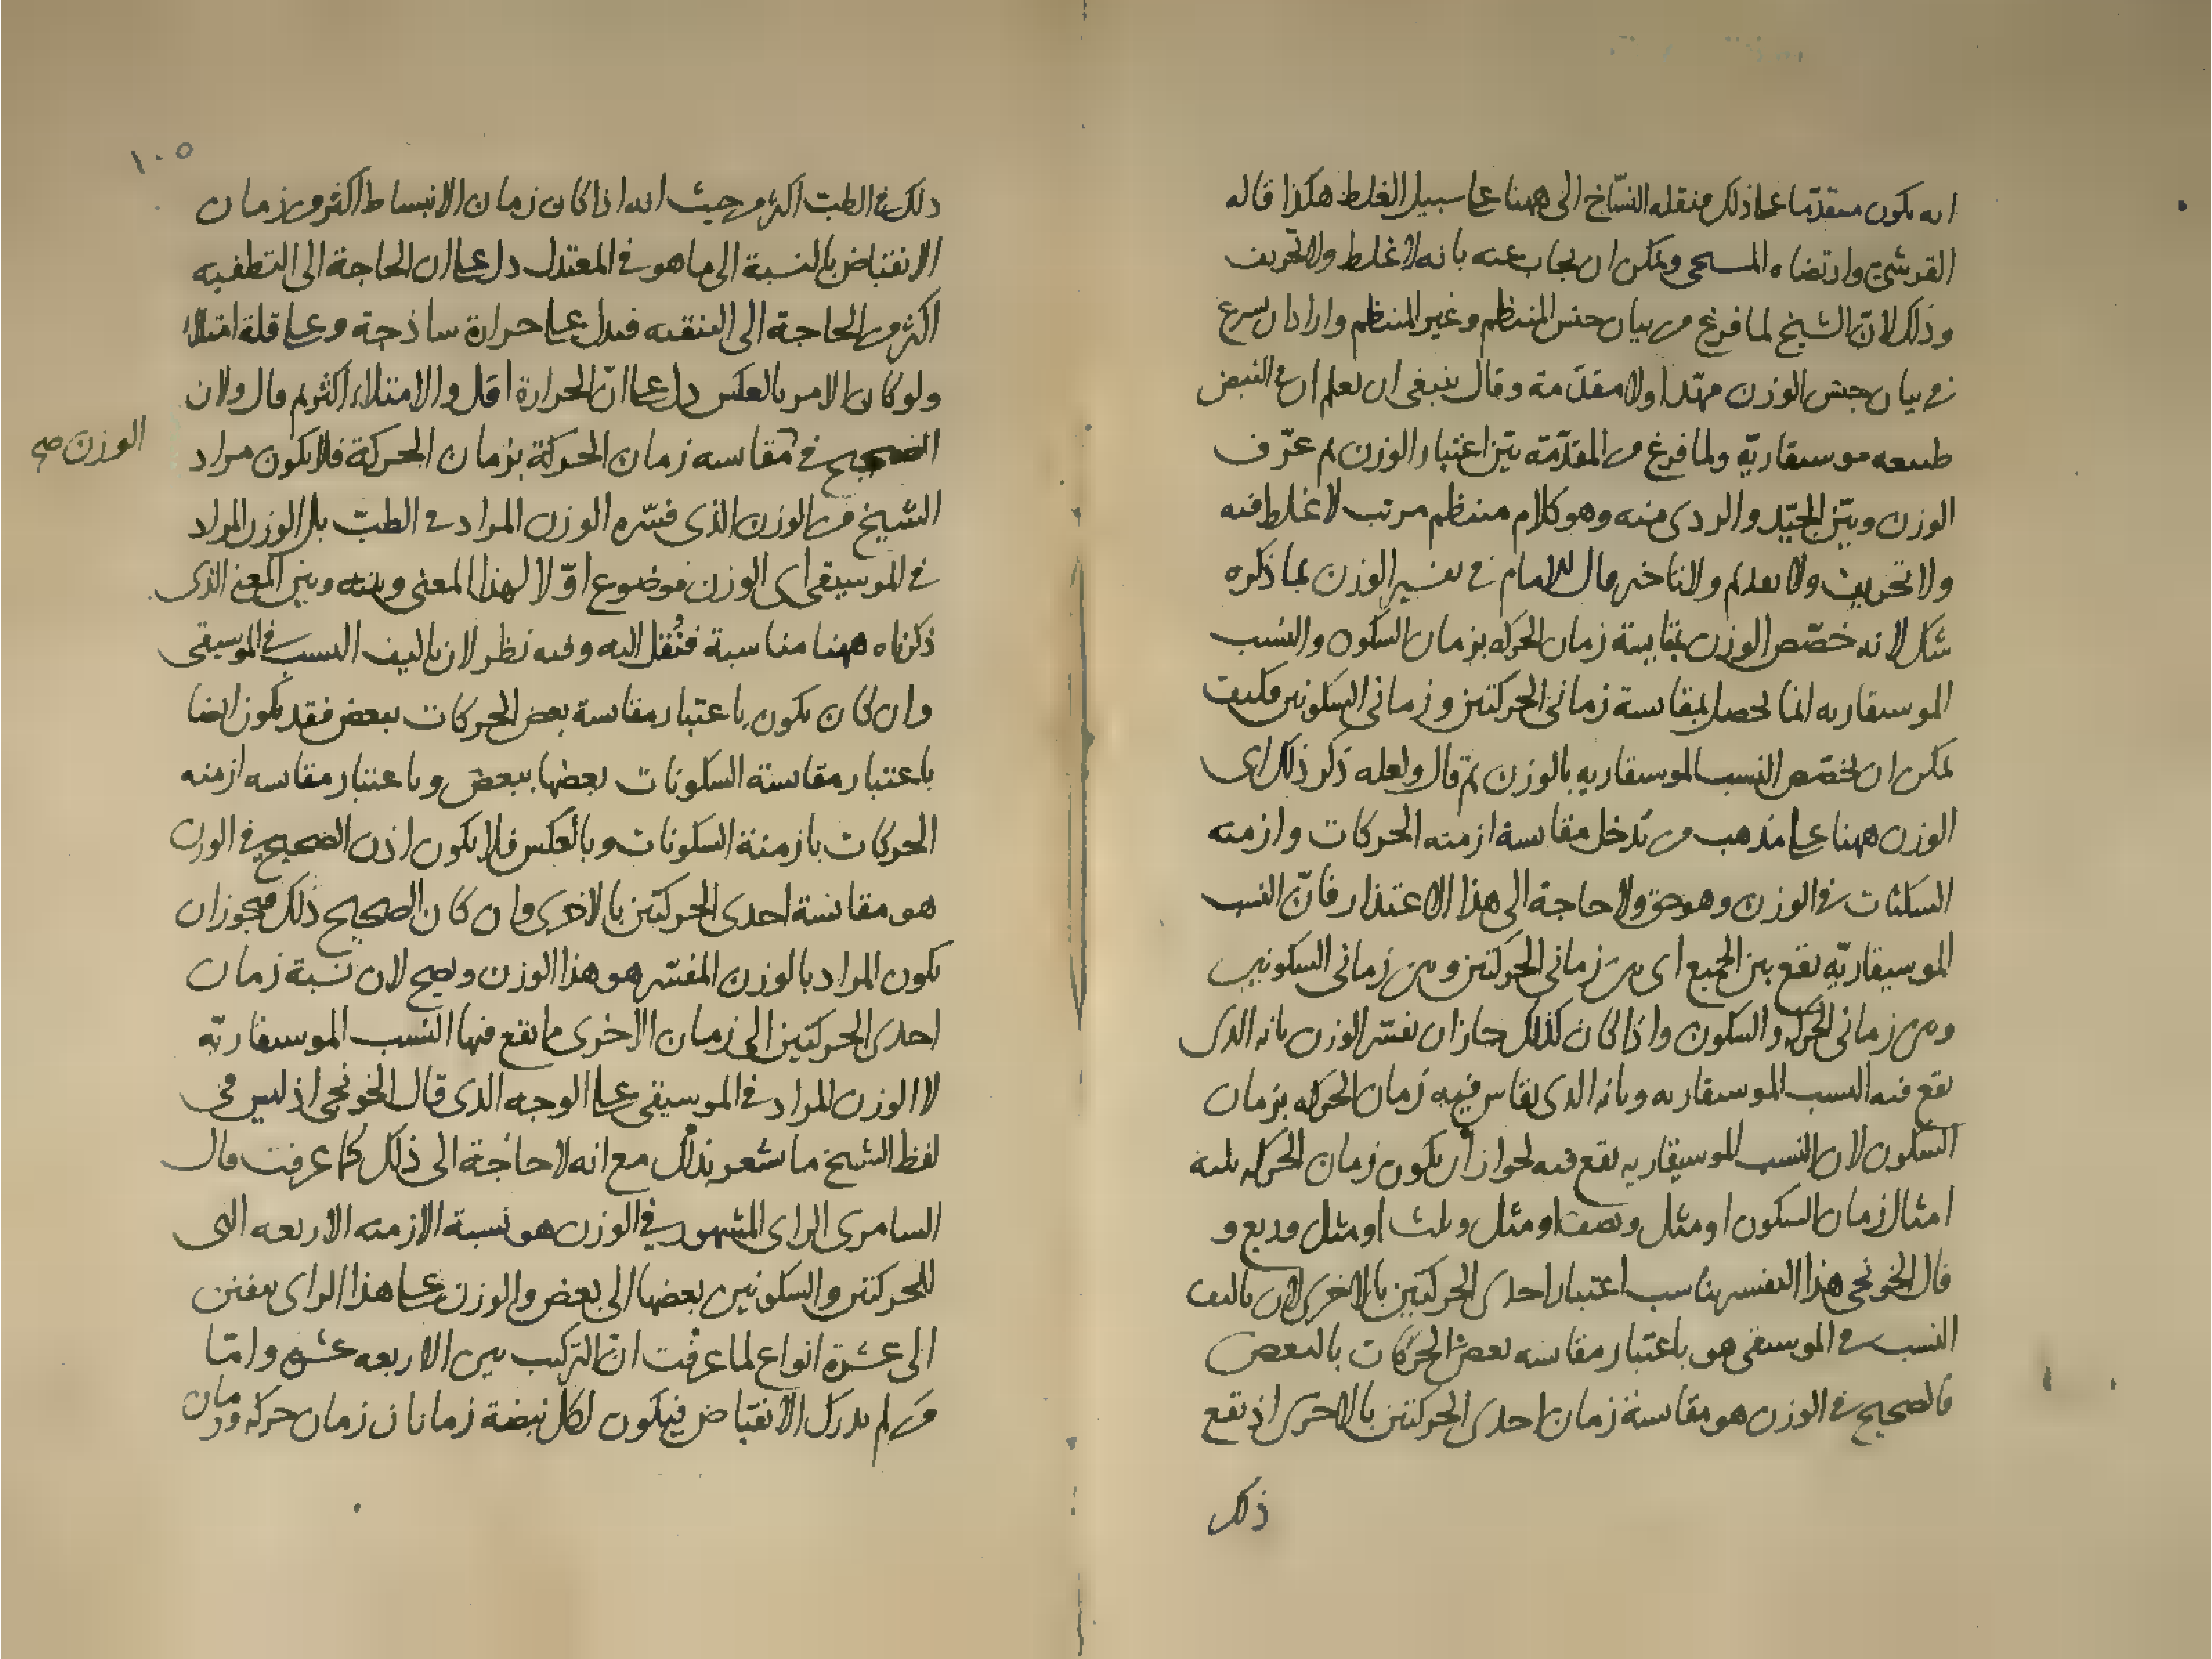 انه يكون متقدّما على ذلك فنقله النسّاخ الى ههنا على سبيل الغلط هكذا قاله
القرشي وارتضاه المسيحي ويمكن ان يجاب عنه بانه لا غلط ولا تحريف
وذلك لانّ الشيخ لما فرغ من بيان جنس المنتظم وغير المنتظم واراد ان يسرع
في بيان جنس الوزن مهّد اولا مقدّمة وقال ينبغي ان يعلم ان في النبض
طبيعه موسيقاريّه ولما فرغ من المقدّمة بيّن اعتبار الوزن ثم عرّف
الوزن وبيّن الجيّد والردى منه وهو كلام منتظم مرتب لا غلط فيه
ولا تحريف ولا تقديم ولا تاخير قال الامام في تفسير الوزن بما ذكره
شكل لانه خصّص الوزن بمقايسة زمان الحركه بزمان السكون والنسب
الموسيقاريه انما تحصل بمقايسة زمانى الحركتين وزمانى السكونين فكيف
يمكن ان تخصّص النسب الموسيقاريه بالوزن ثم قال ولعله ذكر ذلك اى
الوزن ههنا على مذهب من يدخل مقايسة ازمنه الحركات وازمنه
السكنات في الوزن وهو حق ولا حاجة الى هذا الاعتذار فانّ النسب
الموسيقاريّه تقع بين الجميع اى بين زمانى الحركتين وبين زمانى السكونين
وبين زمانى الحركه والسكون واذا كان كذلك جاز ان يفسّر الوزن بانه الذى
يقع فيه النسب الموسيقاريه وبانه الذى يقاس فيه زمان الحركه بزمان
السكون لان النسب الموسيقاريه تقع فيه لجواز ان يكون زمان الحركه ثلثة
امثال زمان السكون او مثل ونصف او مثل وثلث او مثل وربع و
قال الخونجى هذا التفسير يناسب اعتبار احدى الحركتين بالاخرى لان تاليف
النسب في الموسيقى هو باعتبار مقايسه بعض الحركات بالبعض
فالصحيح في الوزن هو مقايسة زمان احدى الحركتين بالاخرى اذ تقع
ذلك
١٠٥
ذلك في الطبّ اكثر من حيث انه اذا كان زمان الانبساط اكثر من زمان
الانقباض بالنسبة الى ما هو في المعتدل دل على ان الحاجة الى التطفيه
اكثر من الحاجة الى التنقيه فيدل على حرارة ساذجة وعلى قلة امتلاء
ولو كان الامر بالعكس دل على انّ الحرارة اقل والامتلاء اكثر ثم قال ولان
الصحيح في مقايسه زمان الحركة بزمان الحركة فلا يكون مراد
الوزن صح
الشيخ من الوزن الذى فسّره الوزن المراد في الطبّ بل الوزن المراد
في الموسيقى اى الوزن موضوع اوّلا لهذا المعنى وبينه وبين المعنى الذى
ذكرناه ههنا مناسبة فنُقل اليه وفيه نظر لان تاليف النسب في الموسيقى
وان كان يكون باعتبار مقايسة بعض الحركات ببعض فقد يكون ايضا
باعتبار مقايسة السكونات بعضها ببعض وباعتبار مقايسه ازمنه
الحركات بازمنة السكونات وبالعكس فلا يكون اذن الصحيح في الوزن
هو مقايسة احدى الحركتين بالاخرى وان كان الصحيح ذلك فيجوز ان
يكون المراد بالوزن المفسّر هو هذا الوزن ويصح لان نسبة زمان
احدى الحركتين الى زمان الاخرى ما يقع فيها النسب الموسيقاريّه
لا الوزن المراد في الموسيقى على الوجه الذى قال الخونجى اذ ليس في
لفظ الشيخ ما يشعر بذلك مع انه لا حاجة الى ذلك كما عرفت قال
السامرى الراى المشهور في الوزن هو نسبة الازمنه الاربعه التى
للحركتين والسكونين بعضها الى بعض والوزن على هذا الراى يتفنن
الى عشرة انواع لما عرفت انّ التركيب بين الاربعه عشره وامّا
من لم يدرك الانقباض فيكون لكل نبضة زمانان زمان حركه وزمان